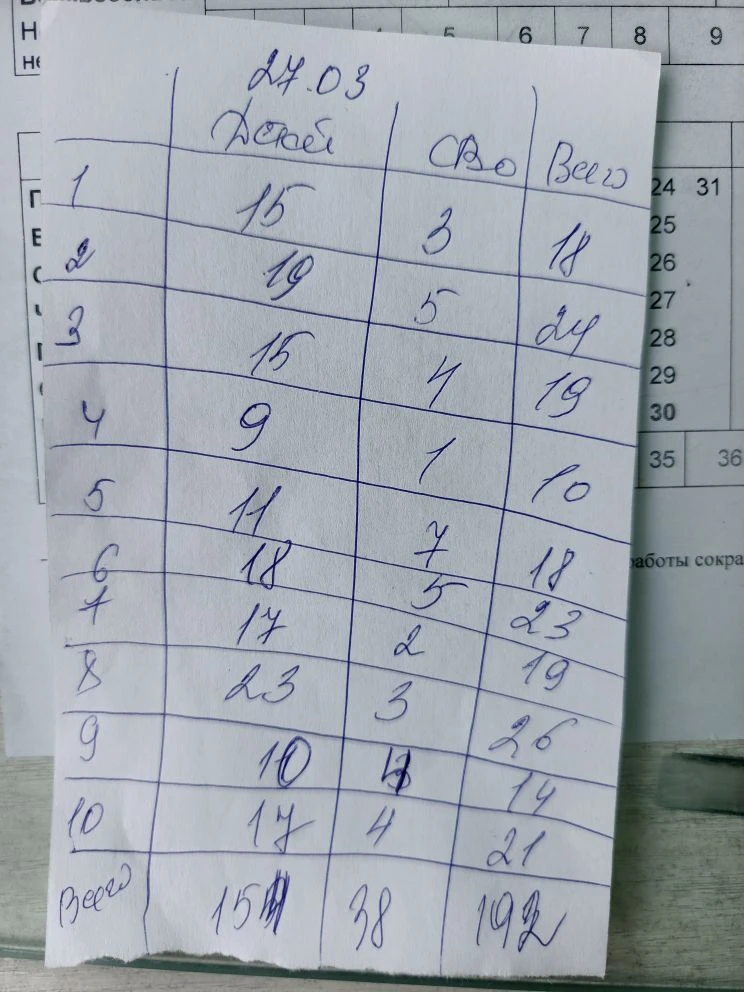 4 5 6 7 8 9
27.03
Детей СВО Всего
1 15 3 18
2 19 5 24
3 15 4 19
4 9 1 10
5 11 7 18
6 18 5 23
7 17 2 19
8 23 3 26
9 10 4 14
10 17 4 21
Всего 154 38 192
24 31
25
26
27
28
29
30
35 36
работы сокра